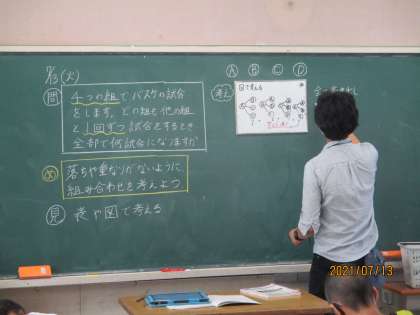 7/13(火)
問
4つの組でバスケの試合
をします。どの組も他の組
と1回ずつ試合をするとき
全部で何試合になりますか
め
落ちや重なりがないように
組み合わせを考えよう
見 表や図で考える
Ⓐ Ⓑ Ⓒ Ⓓ
考え
図で考える
2021/07/13